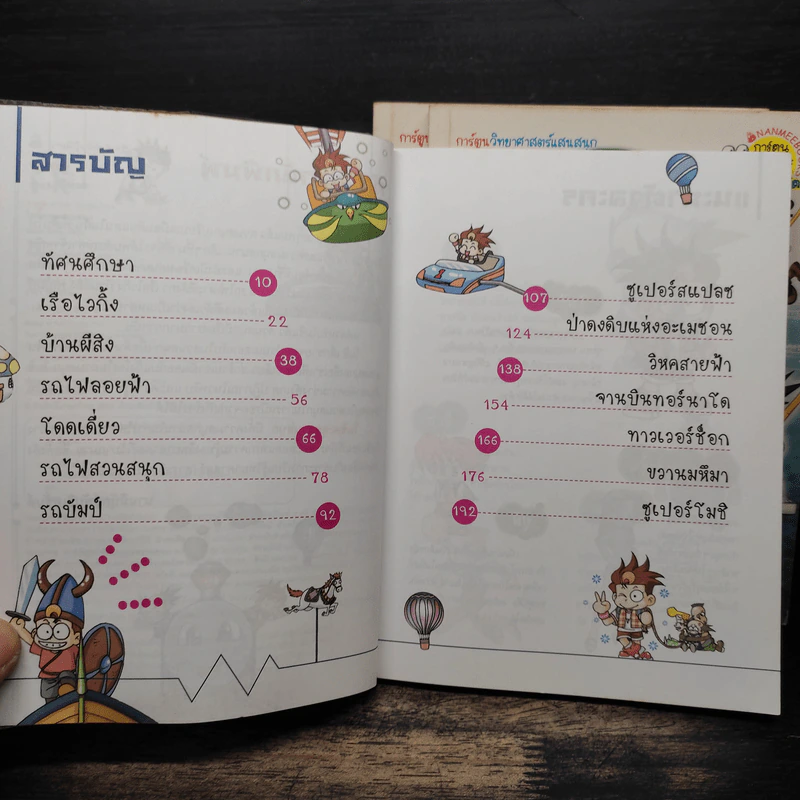 สารบัญ
ทัศนศึกษา 10
เรือไวกิ้ง 22
บ้านผีสิง 38
รถไฟลอยฟ้า 56
โดดเดี่ยว 66
รถไฟสวนสนุก 78
รถบัมป์ 92
107 ซูเปอร์สแปลช
124 ป่าดงดิบแห่งอะเมซอน
138 วิหคสายฟ้า
154 จานบินทอร์นาโด
166 ทาวเวอร์ช็อก
176 ขวานมหึมา
192 ซูเปอร์โมชิ
การ์ตูน
การ์ตูนวิทยาศาสตร์แสนสนุก
NANMEEBOOKS
การ์ตูน